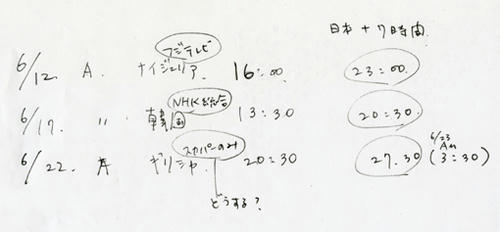 日本 +7時間
フジテレビ
6/12. A. ナイジェリア. 16:00 23:00.
NHK総合
6/17. 〃 韓国 13:30 20:30.
スカパーのみ
6/22. A ギリシャ. 20:30 27.30 (6/23 AM 3:30)
どうする?